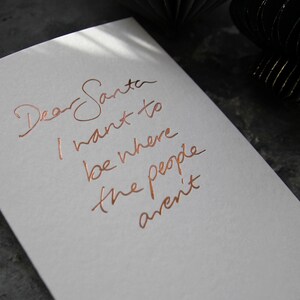 Dear Santa
I want to
be where
the people
aren't